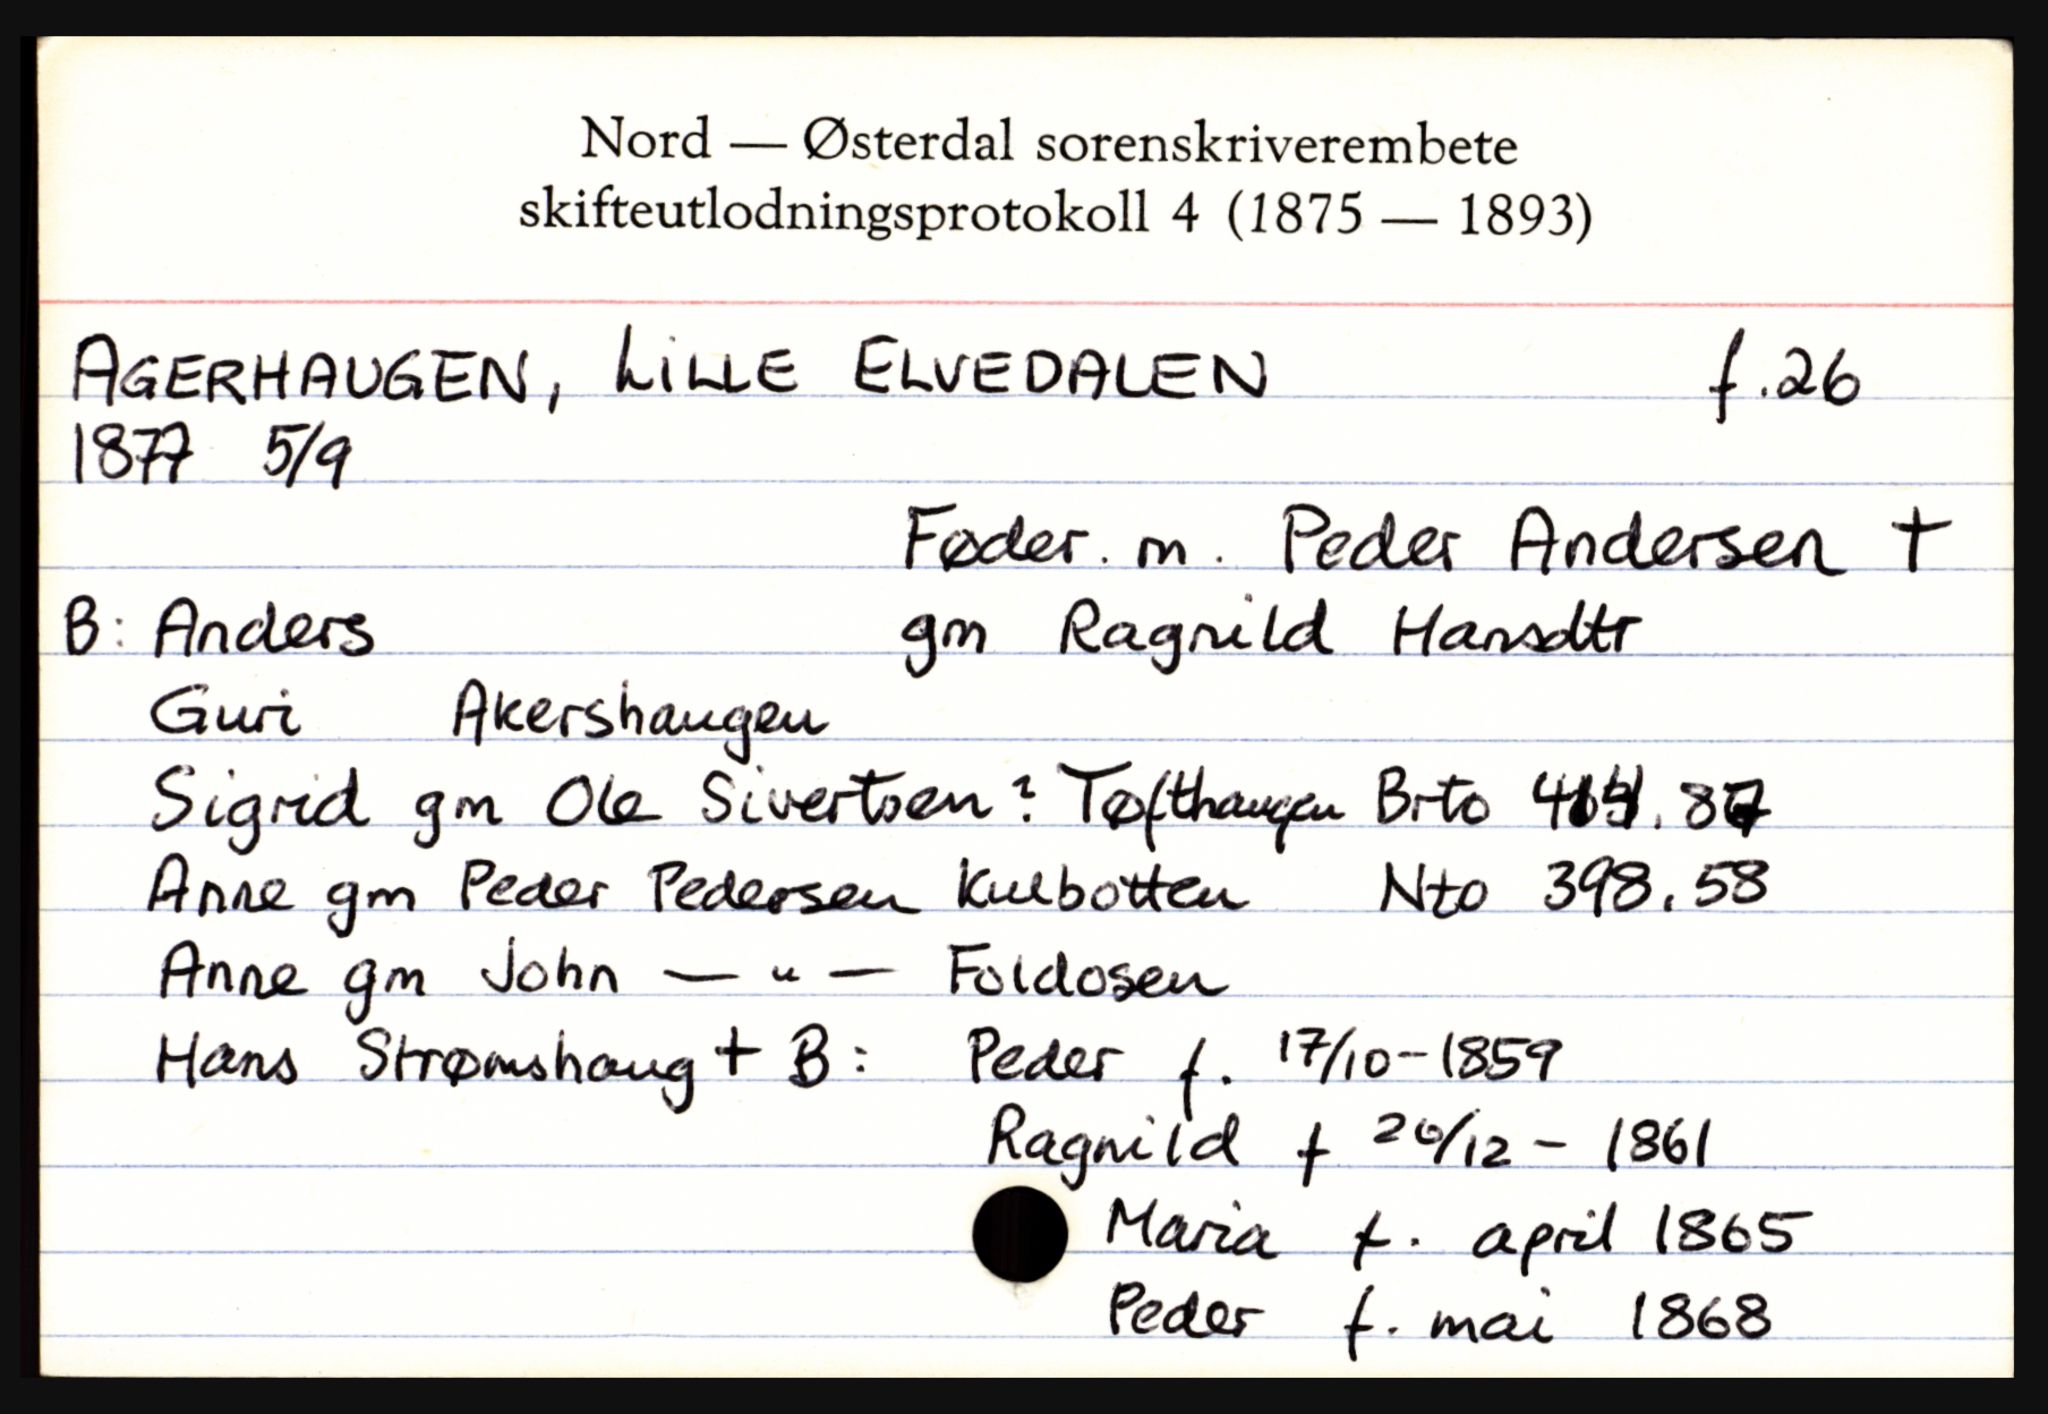 Nord — Østerdal sorenskriverembete
skifteutlodningsprotokoll 4 (1875 — 1893)
AGERHAUGEN, LILLE ELVEDALEN f.26
1877 5/9
Føder. m. Peder Andersen †
B: Anders gm Ragnild Hansdtr
Guri Akershaugen
Sigrid gm Ole Sivertsen? Tøfthaugen Brto
Anne gm Peder Pedersen Kulbotten Nto 398.58
Anne gm John — " — Foldosen
Hans Strømshaug † B: Peder f. 17/10-1859
Ragnild f 20/12 - 1861
Maria f. april 1865
Peder f. mai 1868